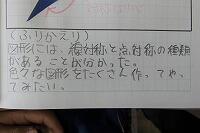 (ふりかえり)
図形には、線対称と点対称の種類
があることが分かった。
色々な図形をたくさん作って、や
てみたい。